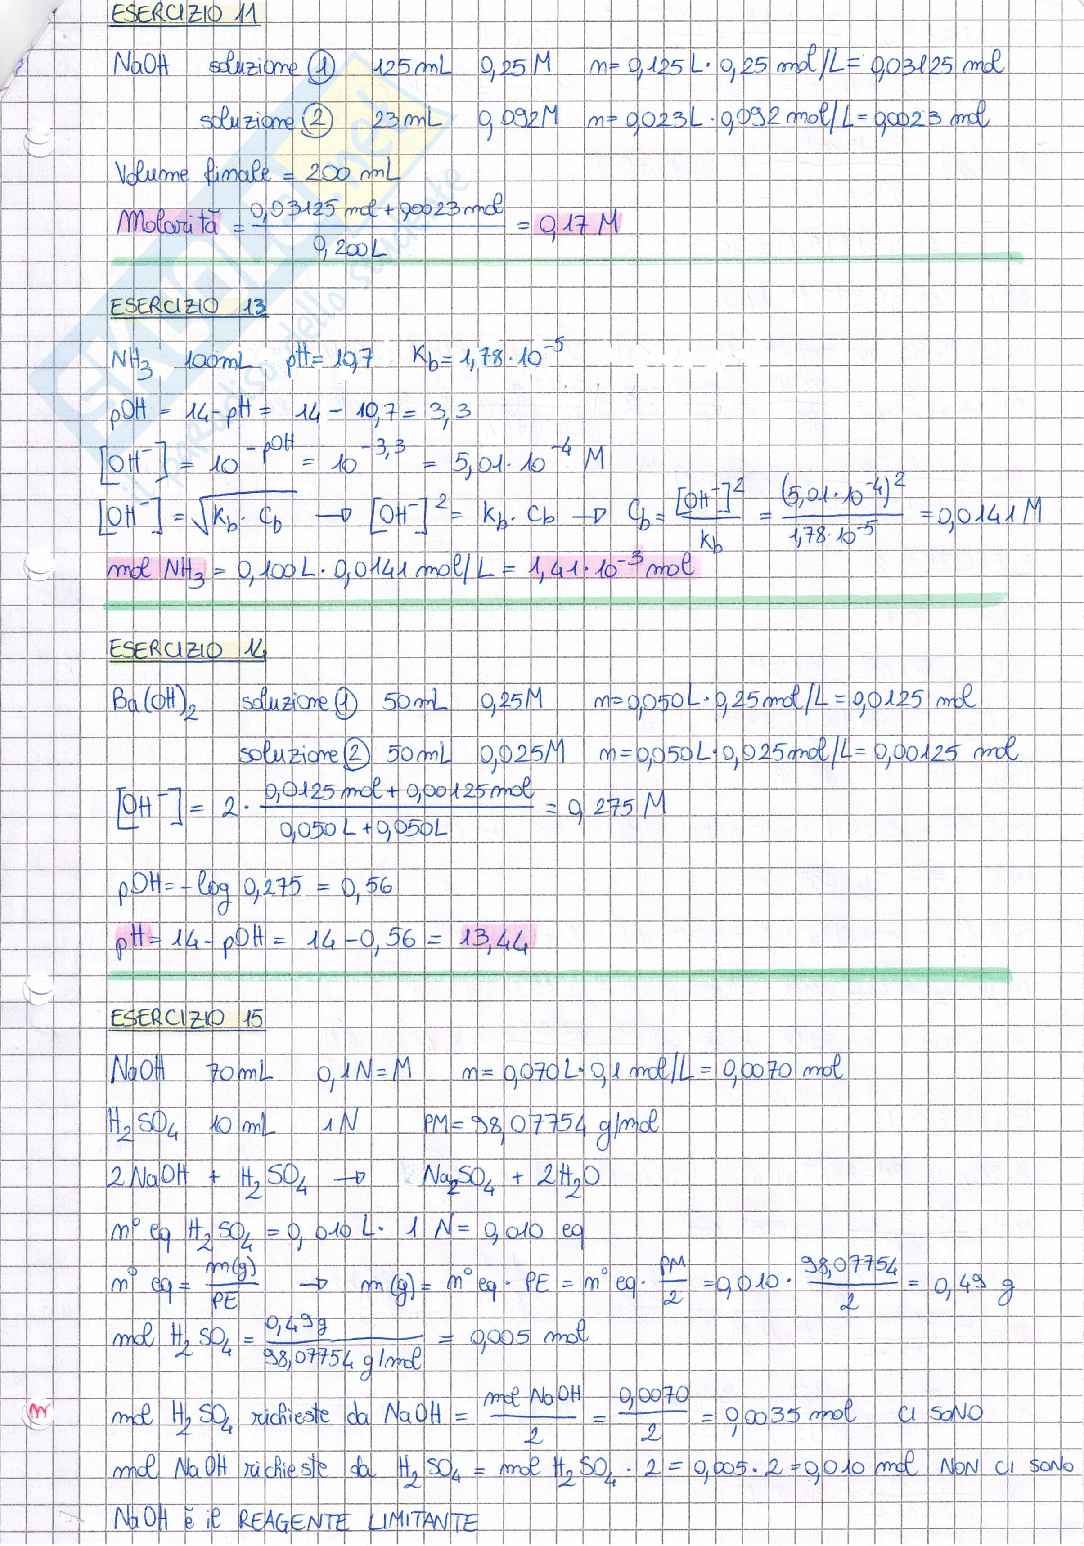 ESERCIZIO 11
NaOH soluzione 1 125 mL 0,25 M n= 0,125 L · 0,25 mol/L = 0,03125 mol
soluzione 2 23 mL 0,092 M n= 0,023 L · 0,092 mol/L = 0,0023 mol
Volume finale = 200 mL
Molarità = (0,03125 mol + 0,0023 mol)/(0,200 L) = 0,17 M
ESERCIZIO 13
NH₃ 100 mL pH = 10,7 Kb = 1,78 · 10⁻⁵
pOH = 14 - pH = 14 - 10,7 = 3,3
[OH⁻] = 10^-pOH = 10^-3,3 = 5,01 · 10⁻⁴ M
[OH⁻] = √(Kb · Cb) → [OH⁻]² = Kb · Cb → Cb = [OH⁻]²/Kb = (5,01 · 10⁻⁴)²/(1,78 · 10⁻⁵) = 0,0141 M
mol NH₃ = 0,100 L · 0,0141 mol/L = 1,41 · 10⁻³ mol
ESERCIZIO 14
Ba(OH)₂ soluzione 1 50 mL 0,25 M n = 0,050 L · 0,25 mol/L = 0,0125 mol
soluzione 2 50 mL 0,025 M n = 0,050 L · 0,025 mol/L = 0,00125 mol
[OH⁻] = 2 · (0,0125 mol + 0,00125 mol)/(0,050 L + 0,050 L) = 0,275 M
pOH = -log 0,275 = 0,56
pH = 14 - pOH = 14 - 0,56 = 13,44
ESERCIZIO 15
NaOH 70 mL 0,1 N = M n = 0,070 L · 0,1 mol/L = 0,0070 mol
H₂SO₄ 10 mL 1 N PM = 98,07754 g/mol
2NaOH + H₂SO₄ → Na₂SO₄ + 2H₂O
n° eq H₂SO₄ = 0,010 L · 1 N = 0,010 eq
n° eq = m(g)/PE → m(g) = n° eq · PE = n° eq · PM/2 = 0,010 · 98,07754/2 = 0,49 g
mol H₂SO₄ = 0,49 g/98,07754 g/mol = 0,005 mol
mol H₂SO₄ richieste da NaOH = mol NaOH/2 = 0,0070/2 = 0,0035 mol CI SONO
mol NaOH richieste da H₂SO₄ = mol H₂SO₄ · 2 = 0,005 · 2 = 0,010 mol NON CI SONO
NaOH è il REAGENTE LIMITANTE